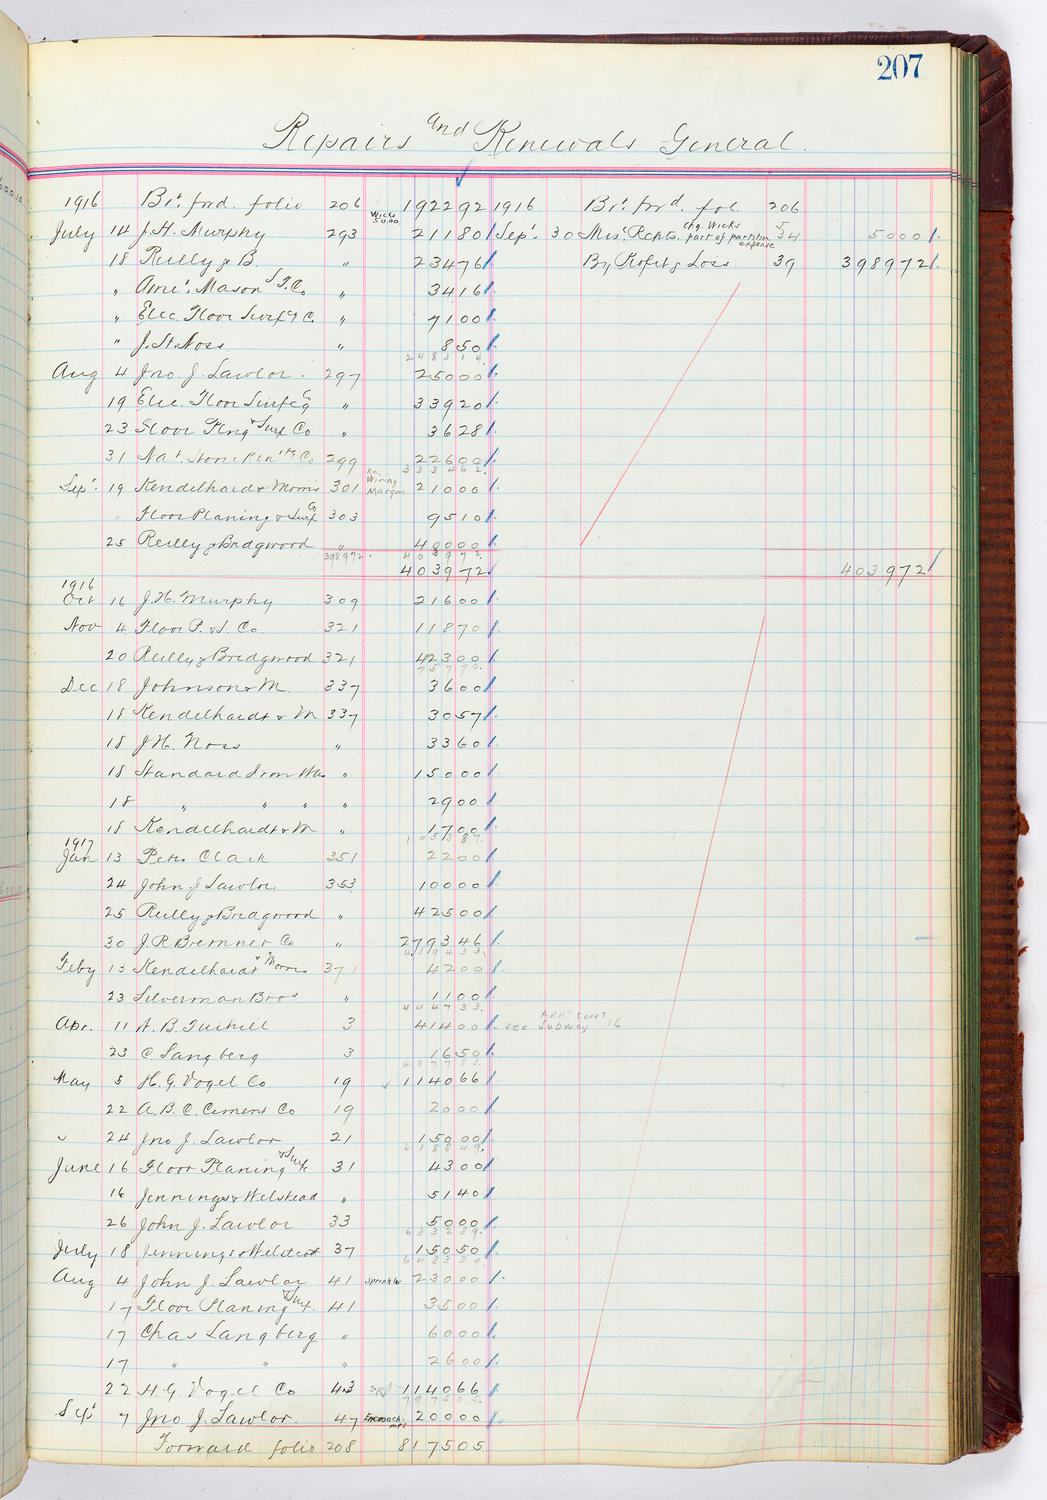 207
Repairs and Renewals General.
1916 Brt. ford. folio 206 192292 1916 Brt. ford. fol. 206
July 14 J.H. Murphy 293 Wicks 50.00 21180 Sept. 30 Mis. Rcpts. chg. Wicks part of partition expense 34 5000
18 Reilly & B. " 23476 By Profit & Loss 39 398972
" Amer. Mason S.T. Co " 3416
" Elec. Floor Surfg C. " 7100
" J.H. Noss " 850
248314
Aug 4 Jno. J. Lawlor. 297 25000
19 Elec. Floor Surfcg Co " 33920
23 Floor Plng & Surf Co " 3628
31 Nat. Stone Ren'tg Co 299 22600
333462
Sept. 19 Kendelhardt & Morris 301 Re. Wiring Marque 21000
Floor Planing & Surf Co 303 9510
25 Reilly & Bridgwood " 40000
398972 403972
403972 403972
1916
Oct 16 J.H. Murphy 309 21600
Nov 4 Floor P. & S. Co. 321 11870
20 Reilly & Bridgwood 321 42300
75770
Dec 18 Johnson & M. 337 3600
18 Kendelhardt & M 337 3057
18 J.H. Noss " 3360
18 Standard Iron Wks " 15000
18 " " " " 2900
18 Kendelhardt & M " 1700
105387
1917
Jan 13 Peter Clark 351 2200
24 John J. Lawlor. 353 10000
25 Reilly & Bridgwood " 42500
30 J.R. Bremner Co " 279346
439433
Feby 13 Kendelhardt & Morris 371 4200
23 Silverman Bros " 1100
444733
Apr. 11 A.B. Tuthill 3 41400 see Subway 16
23 C Langberg 3 1650
487783
May 5 H.G. Vogel Co 19 114066
22 A.B.C. Cement Co 19 2000
" 24 Jno J. Lawlor 21 15000
618849
June 16 Floor Planing & Surf. 31 4300
16 Jennings & Welstead " 5140
26 John J. Lawlor 33 5000
633289
July 18 Jennings & Welstead 37 15050
648339
Aug 4 John J. Lawlor 41 sprinkler 23000
17 Floor Planing & Surf. 41 3500
17 Chas Langberg " 6000
17 " " " 2600
22 H.G. Vogel Co 43 114066
797505
Sept 7 Jno J. Lawlor. 47 Encroach- mts 20000
Forward folio 208 817505